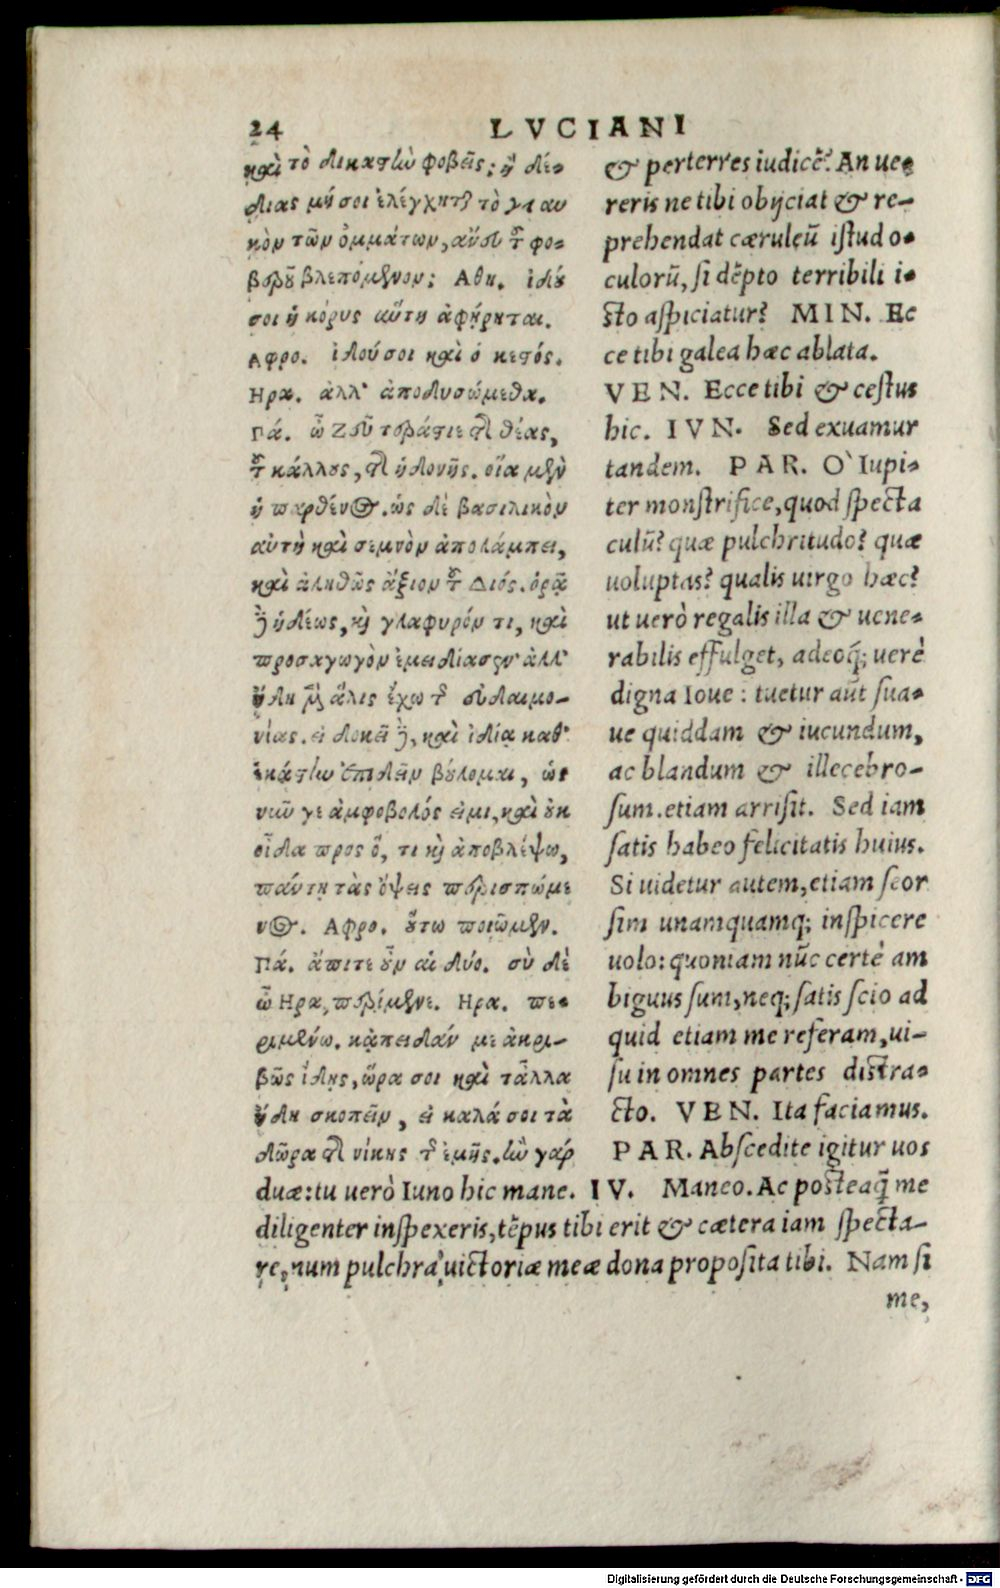 24 LVCIANI
καὶ τὸ δικαστὴν φοβεῖς; ἢ δέ-
διας μή σοι ἐλέγχηται τὸ γλαυ
κὸν τῶν ὀμμάτων, ἄνευ τοῦ φο-
βεροῦ βλεπόμενον; Αθη. ἰδού
σοι ἡ κόρυς αὕτη ἀφῄρηται.
Αφρο. ἰδού σοι καὶ ὁ κεστός.
Ηρα. ἀλλ' ἀποδυσώμεθα.
Πά. ὦ Ζεῦ τεράστιε τῆς θέας,
τοῦ κάλλους, τῆς ἡδονῆς. οἵα μὲν
ἡ παρθένος. ὡς δὲ βασιλικὸν
αὐτὴ καὶ σεμνὸν ἀπολάμπει,
καὶ ἀληθῶς ἄξιον τοῦ Διός. ὁρᾷ
δὲ ἡδέως, καὶ γλαφυρόν τι, καὶ
προσαγωγὸν ἐμειδίασεν· ἀλλ'
ἤδη μὲν ἅλις ἔχω τῆς εὐδαιμο-
νίας. εἰ δοκεῖ δὲ, καὶ ἰδίᾳ καθ'
ἑκάστην ἐπιδεῖν βούλομαι, ὡς
νῦν γε ἀμφοβολός εἰμι, καὶ οὐκ
οἶδα προς ὅ, τι καὶ ἀποβλέψω,
πάντη τὰς ὄψεις περισπώμε
νος. Αφρο. οὕτω ποιῶμεν.
Πά. ἄπιτε οὖν αἱ δύο. σὺ δὲ
ὦ Ηρα, περίμενε. Ηρα. πε-
ριμενῶ. κᾀπειδάν με ἀκρι-
βῶς ἴδῃς, ὥρα σοι καὶ τἆλλα
ἤδη σκοπεῖν, εἰ καλά σοι τὰ
δῶρα τῆς νίκης τῆς ἐμῆς. ἢν γάρ
& perterres iudicē? An ue-
reris ne tibi obijciat & re-
prehendat cæruleū istud o-
culorū, si dēpto terribili i-
sto aspiciatur? MIN. Ec
ce tibi galea hæc ablata.
VEN. Ecce tibi & cestus
hic. IVN. Sed exuamur
tandem. PAR. O` Iupi-
ter monstrifice, quod specta
culū? quæ pulchritudo? quæ
uoluptas? qualis uirgo hæc?
ut uerò regalis illa & uene-
rabilis effulget, adeoq́; uerè
digna Ioue: tuetur aūt sua-
ue quiddam & iucundum,
ac blandum & illecebro-
sum. etiam arrisit. Sed iam
satis habeo felicitatis huius.
Si uidetur autem, etiam seor
sim unamquamq; inspicere
uolo: quoniam nūc certè am
biguus sum, neq; satis scio ad
quid etiam me referam, ui-
su in omnes partes distra-
cto. VEN. Ita faciamus.
PAR. Abscedite igitur uos
duæ: tu uerò Iuno hic mane. IV. Maneo. Ac posteaq̃ me
diligenter inspexeris, tēpus tibi erit & cætera iam specta-
re, num pulchra uictoriæ meæ dona proposita tibi. Nam si
me,
Digitalisierung gefördert durch die Deutsche Forschungsgemeinschaft - DFG